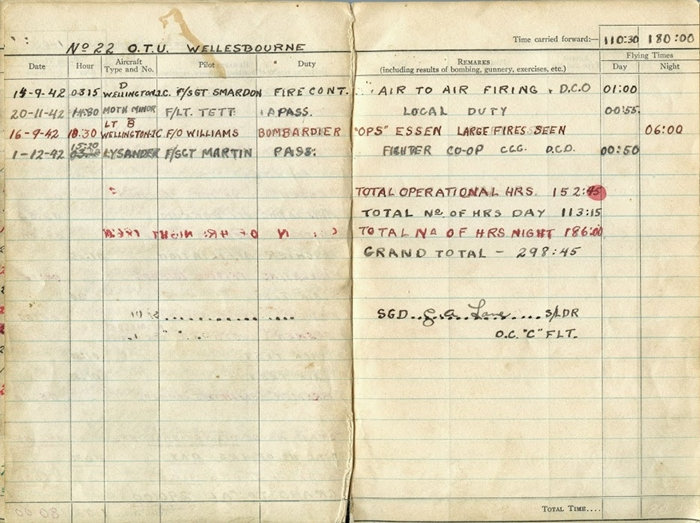 No 22 O.T.U. WELLESBOURNE
Time carried forward:— 110:30 180:00
Date Hour Aircraft Type and No. Pilot Duty Remarks (including results of bombing, gunnery, exercises, etc.) Flying Times Day Night
D
15-9-42 0315 WELLINGTON.I.C. F/SGT SMARDON FIRE CONT. AIR TO AIR FIRING D.C.O 01:00
20-11-42 MOTH MINOR F/LT. TETT PASS. LOCAL DUTY 00:55
LT B
16-9-42 18.30 WELLINGTON.IC F/O WILLIAMS BOMBARDIER "OPS" ESSEN LARGE FIRES SEEN 06:00
1-12-42 LYSANDER F/SGT MARTIN PASS. FIGHTER CO-OP D.C.O. 00:50
TOTAL OPERATIONAL HRS. 152:45
TOTAL No. OF HRS DAY 113:15
TOTAL No OF HRS NIGHT 186:00
GRAND TOTAL — 298:45
SGD... S/LDR
O.C. "C" FLT.
TOTAL TIME....